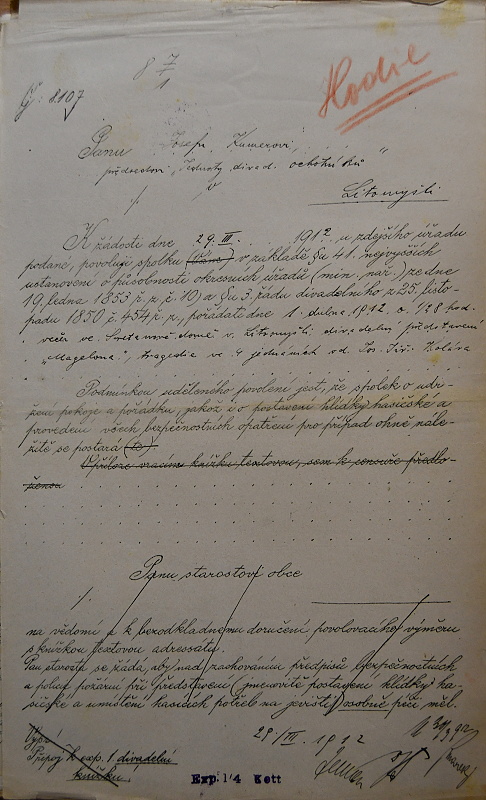 8 7/1
Čj: 8.107
Hodie
Panu Josefu Kumerovi,
předsedovi „Jednoty divad. ochotníků"
v
Litomyšli
K žádosti dne 29. III. 1912 u zdejšího úřadu
podané, povoluji spolku v základě §u 41. nejvyšších
ustanovení o působnosti okresních úřadů (min. nař.) ze dne
19. ledna 1853 ř. z. č. 10) a §u 3. řádu divadelního z 25. listo-
padu 1850 č. 454 ř. z., pořádati dne 1. dubna 1912 o 1/28 hod.
večer ve Smetanově domě v Litomyšli divadelní představení
„Magelona", tragedie ve 4 jednáních od Jos. Jiř. Kolára
Podmínkou uděleného povolení jest, že spolek o udr-
žení pokoje a pořádku, jakož i o postavení hlídky hasičské a
provedení všech bezpečnostních opatření pro případ ohně nále-
žitě se postará
V příloze vracím knížku textovou, sem k censuře předlo-
ženou
Panu starostovi obce
na vědomí a k bezodkladnému doručení povolovacího výměru
s knížkou textovou adressatu.
Pan starosta se žádá, aby nad zachováním předpisů bezpečnostních
a policie požární při představení (jmenovitě postavení hlídky ha-
sičské a umístění hasicích potřeb na jevišti) osobně péči měl.
29/III. 1912
Připoj k exp. 1 divadelní
knížku!
Exp. 1/4 Kett